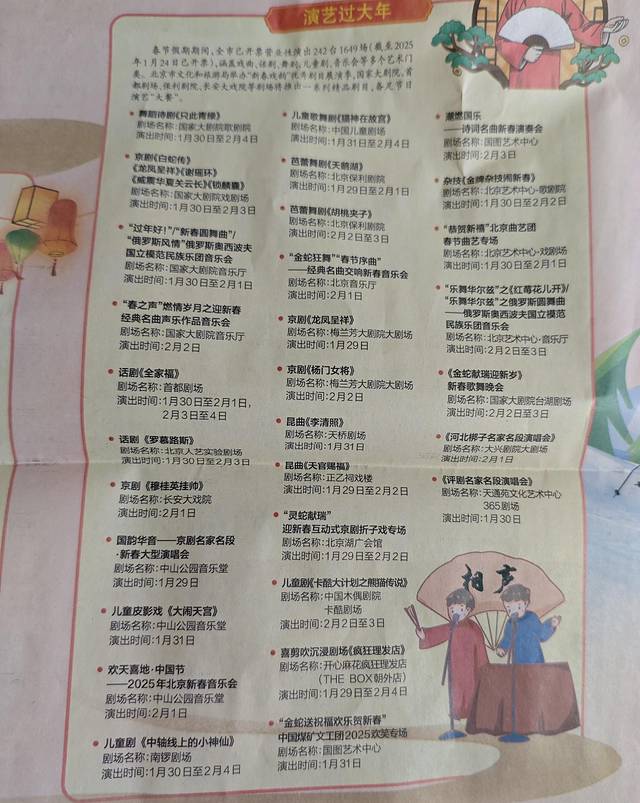 演艺过大年
春节假期期间,全市已开票营业性演出242台1649场(截至2025
年1月24日已开票),涵盖戏曲、话剧、舞剧、儿童剧、音乐会等多个艺术门
类。北京市文化和旅游局举办“新春戏韵”优秀剧目展演季,国家大剧院、首
都剧场、保利剧院、长安大戏院等剧场将推出一系列精品剧目,备足节日
演艺“大餐”。
舞蹈诗剧《只此青绿》
剧场名称:国家大剧院歌剧院
演出时间:1月30日至2月4日
京剧《白蛇传》
《龙凤呈祥》《谢瑶环》
《威震华夏关云长》《锁麟囊》
剧场名称:国家大剧院戏剧场
演出时间:1月30日至2月3日
“过年好!”/“新春圆舞曲”/
“俄罗斯风情”俄罗斯奥西波夫
国立模范民族乐团音乐会
剧场名称:国家大剧院音乐厅
演出时间:1月30日至2月1日
“春之声”燃情岁月之迎新春
经典名曲声乐作品音乐会
剧场名称:国家大剧院音乐厅
演出时间:2月2日
话剧《全家福》
剧场名称:首都剧场
演出时间:1月30日至2月1日,
2月3日至4日
话剧《罗慕路斯》
剧场名称:北京人艺实验剧场
演出时间:1月30日至2月3日
京剧《穆桂英挂帅》
剧场名称:长安大戏院
演出时间:2月1日
国韵华音——京剧名家名段
·新春大型演唱会
剧场名称:中山公园音乐堂
演出时间:1月29日
儿童皮影戏《大闹天宫》
剧场名称:中山公园音乐堂
演出时间:1月31日
欢天喜地·中国节
——2025年北京新春音乐会
剧场名称:中山公园音乐堂
演出时间:2月1日
儿童剧《中轴线上的小神仙》
剧场名称:南锣剧场
演出时间:1月30日至2月4日
儿童歌舞剧《猫神在故宫》
剧场名称:中国儿童剧场
演出时间:1月31日至2月4日
芭蕾舞剧《天鹅湖》
剧场名称:北京保利剧院
演出时间:1月29日至2月1日
芭蕾舞剧《胡桃夹子》
剧场名称:北京保利剧院
演出时间:2月2日至3日
“金蛇狂舞”“春节序曲”
——经典名曲交响新春音乐会
剧场名称:北京音乐厅
演出时间:2月1日
京剧《龙凤呈祥》
剧场名称:梅兰芳大剧院大剧场
演出时间:1月29日
京剧《杨门女将》
剧场名称:梅兰芳大剧院大剧场
演出时间:2月2日
昆曲《李清照》
剧场名称:天桥剧场
演出时间:1月31日
昆曲《天官赐福》
剧场名称:正乙祠戏楼
演出时间:1月29日至2月2日
“灵蛇献瑞”
迎新春互动式京剧折子戏专场
剧场名称:北京湖广会馆
演出时间:1月29日至2月2日
儿童剧《卡酷大计划之熊猫传说》
剧场名称:中国木偶剧院
卡酷剧场
演出时间:2月2日至3日
喜剪吹沉浸剧场《疯狂理发店》
剧场名称:开心麻花疯狂理发店
(THE BOX朝外店)
演出时间:1月29日至2月4日
“金蛇送祝福欢乐贺新春”
中国煤矿文工团2025欢笑专场
剧场名称:国图艺术中心
演出时间:1月31日
潮燃国乐
——诗词名曲新春演奏会
剧场名称:国图艺术中心
演出时间:2月3日
杂技《金牌杂技闹新春》
剧场名称:北京艺术中心·歌剧院
演出时间:1月30日至2月2日
“恭贺新禧”北京曲艺团
春节曲艺专场
剧场名称:北京艺术中心·戏剧场
演出时间:1月30日至2月1日
“乐舞华尔兹”之《红莓花儿开》/
“乐舞华尔兹”之俄罗斯圆舞曲
——俄罗斯奥西波夫国立模范
民族乐团音乐会
剧场名称:北京艺术中心·音乐厅
演出时间:2月2日至3日
《金蛇献瑞迎新岁》
新春歌舞晚会
剧场名称:国家大剧院台湖剧场
演出时间:2月2日至3日
《河北梆子名家名段演唱会》
剧场名称:大兴剧院大剧场
演出时间:2月1日
《评剧名家名段演唱会》
剧场名称:天通苑文化艺术中心
365剧场
演出时间:1月30日
相声